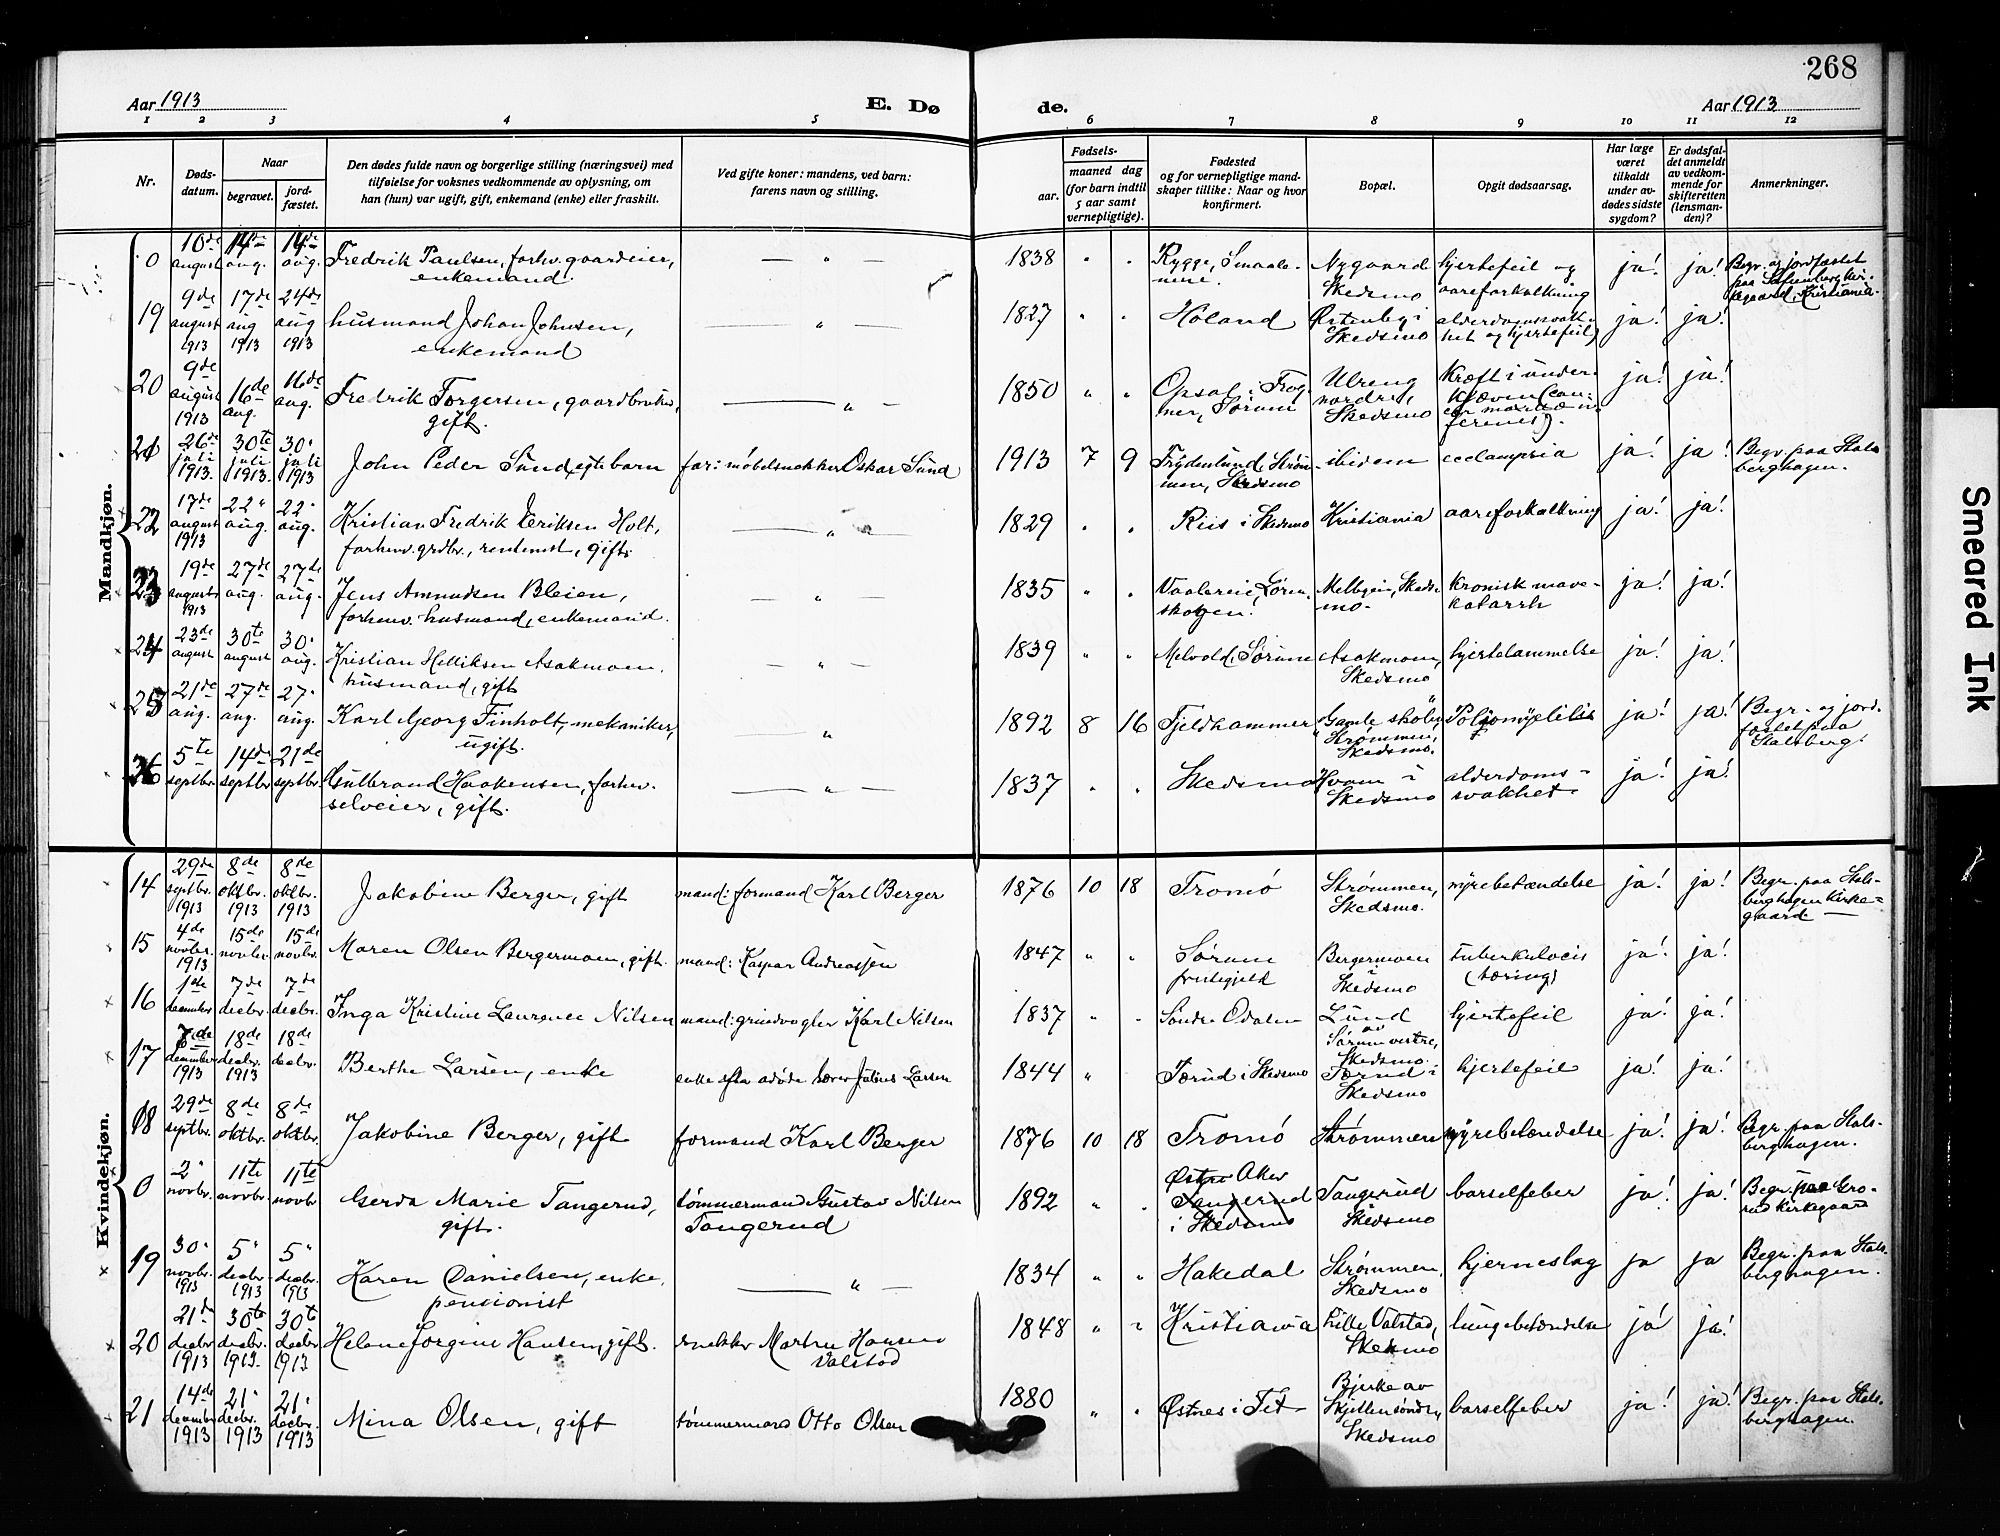 268
Aar 1913 E. Dø de. Aar 1913
1 2 3 4 5 6 7 8 9 10 11 12
Nr. Døds-datum. Naar begravet. jord-fæstet. Den dødes fulde navn og borgerlige stilling (næringsvei) med tilføielse for voksnes vedkommende av oplysning, om han (hun) var ugift, gift, enkemand (enke) eller fraskilt. Ved gifte koner: mandens, ved barn: farens navn og stilling. Fødsels- aar. maaned dag (for barn indtil 5 aar samt vernepligtige). Fødested og for vernepligtige mand-skaper tillike: Naar og hvor konfirmert. Bopæl. Opgit dødsaarsag. Har læge været tilkaldt under av-dødes sidste sygdom? Er dødsfal-det anmeldt av vedkom-mende for skifteretten (lensman-den)? Anmerkninger.
Mandkjøn.
0 10de august 14de aug. 14de aug. Fredrik Paulsen, forhv. gaardeier, enkemand. — " — 1838 " " Rygge, Smaale-nene. Nygaard Skedsmo hjertefeil og aareforkalkning ja! ja! Begr. og jordfæstet paa Sofienberg kir-kegaard, Kristiania.
19 9de august 1913 17de aug 1913 24de aug 1913 husmand Johan Johnsen, enkemand — " — 1827 " " Høland Østenby i Skedsmo alderdomssvak-het og hjertefeil ja! ja!
20 9de august 1913 16de aug. 16de aug. Fredrik Torgersen, gaardbruker, gift. — " — 1850 " " Opsal i Frog-ner, Sørum Ulreng nordre, Skedsmo kræft i under-kjæven ja! ja!
21 26de juli 1913 30te juli 1913. 30. juli 1913 John Peder Sund, egte barn far: møbelsnekker Oskar Sund 1913 7 9 Frydenlund, Strøm-men, Skedsmo ibidem ecclampsia ja! ja! Begr. paa Stals-berghagen.
22 17de august 1913 22 " aug. 22 " aug. Kristian Fredrik Eriksen Holt, forhenv. grdbr., rentenist, gift. — " — 1829 " " Riis i Skedsmo Kristiania aareforkalkning ja! ja!
23 19de august 1913 27de aug. 27de aug. Jens Amundsen Bleien, forhenv. husmand, enkemand. — " — 1835 " " Vaalerei, Løren-skogen! Melbyeie, Skeds-mo. kronisk mave-katarrh ja! ja!
24 23de august 30te august 30. aug. Kristian Helliksen Asakmoen. husmand, gift — " — 1839 " " Melvold, Sørum Asakmoen, Skedsmo hjertelammelse ja! ja!
25 21de aug. 27de aug. 27. aug. Karl Georg Finholt, mekaniker, ugift. " 1892 8 16 Fjeldhammer Gamle skolen, Strømmen, Skedsmo. Poliomyelitis ja! ja! Begr. og jord-fæstet paa Stalsberg.
26 5te septbr. 14de septbr 21de septbr. Gulbrand Haakensen, forhv. selveier, gift. — " — 1837 " " Skedsmo Hvam i Skedsmo alderdoms-svakhet. ja! ja!
Kvindekjøn.
14 29de septbr. 1913 8de oktbr. 1913 8de oktbr. 1913 Jakobine Berger, gift mand: formand Karl Berger 1876 10 18 Tromö Strømmen, Skedsmo. nyrebetændelse ja! ja! Begr. paa Stals-berghagen Kirke-gaard —
15 4de novbr. 1913 15de novbr. 15de novbr. Maren Olsen Bergermoen, gift. mand: Kaspar Andreassen 1847 " " Sørum prestegjeld Bergermoen i Skedsmo tuberkulosis (tæring) ja! ja!
16 1ste december 7de decbr. 7de decbr. Inga Kristine Laurence Nilsen mand: grindvogter Karl Nilsen 1837 " " Søndre Odalen Lund av Sørum vestre, Skedsmo. hjertefeil ja! ja!
17 7de december 1913 18de decbr. 1913 18de decbr. Berthe Larsen, enke enke efter avdøde lærer Julius Larsen 1844 " Tærud i Skedsmo Tærud i Skedsmo hjertefeil ja! ja!
18 29de septbr. 8de oktbr. 8de oktbr. Jakobine Berger, gift formand Karl Berger 1876 10 18 Tromö Strømmen nyrebetændelse ja! ja! Begr. paa Stals-berghagen.
0 2 " novbr. 11te novbr. 11te novbr Gerda Marie Tangerud, gift. tømmermand Gustav Nilsen Tangerud 1892 " " Østre Aker Tangerud i Skedsmo Tangerud Skedsmo barselfeber ja! ja! Begr. paa Gro-rud Kirkegaard
19 30. novbr. 1913 5 " decbr. 1913 5 " decbr. 1913 Karen Danielsen, enke, pensionist — " — 1834 " " Hakedal Strømmen, Skedsmo hjerneslag ja ja Begr. paa Stals-berghagen.
20 21de decbr 1913 30te decbr. 1913. 30te decbr 1913 Helene Jorgine Hansen, gift. snekker Martin Hansen Valstad 1848 " " Kristiania Lille Valstad, Skedsmo lungebetændelse ja ja!
21 14de december 1913 21. decbr. 1913 21. decbr. 1913 Mina Olsen, gift tømmermand Otto Olsen 1880 " " Østnes i Fet Bjerke av Skjetten søndre, Skedsmo barselfeber ja! ja! Begr. paa Stals-berghagen.
Smeared Ink